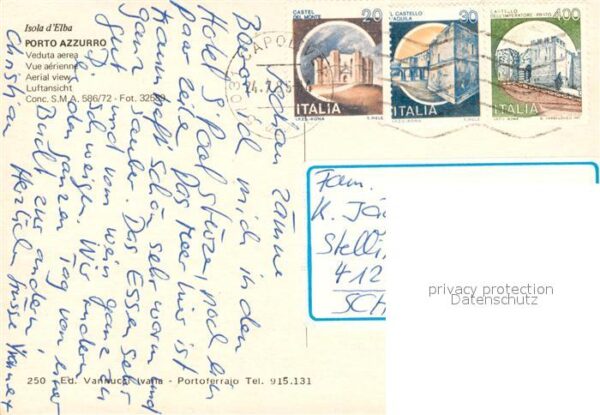 Isola d'Elba
PORTO AZZURRO
Veduta aerea
Vue aérienne
Aerial view
Luftansicht
Conc. S.M.A. 586/72 - Fot.
CASTEL
DEL MONTE
20
ITALIA
IL CASTELLO
L'AQUILA
30
ITALIA
CASTELLO
DELL'IMPERATORE - PRATO
400
ITALIA
Bevor ich mich in den
Hotel's Pool stürze, noch ein
paar Zeile. Das Meer hier ist
schön, sehr warm und
ganz sauber. Das Essen sehr
gut und vom Wein ganz zu
schweigen. Wir
den ganzen Tag von einer
Bucht zur andern.
Herzliche Grüsse
Christian
Fam.
K.
412
SCH
privacy protection
Datenschutz
250 - Ed. Vannucci Ivana - Portoferraio Tel. 915.131